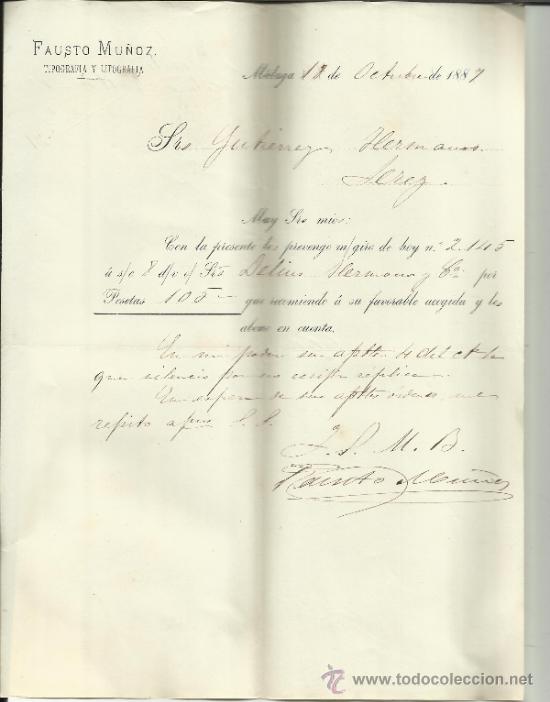 FAUSTO MUÑOZ.
TIPOGRAFÍA Y LITOGRAFÍA
Málaga 12 de Octubre de 1887
Srs Gutierrez Hermanos
Jerez.
Muy Srs mios:
Con la presente les prevengo m/giro de hoy n.º 2.145
á s/o 8 d/v c/ Srs Delius Hermano y Cª. por
Pesetas 105 que recomiendo á su favorable acogida y les
abono en cuenta.
En mi poder su 4 del
que silencio por no replica.
En espera de sus órdenes, me
repito S. S.
Q. S. M. B.
Fausto Muñoz
todocoleccion.net
http://www.todocoleccion.net